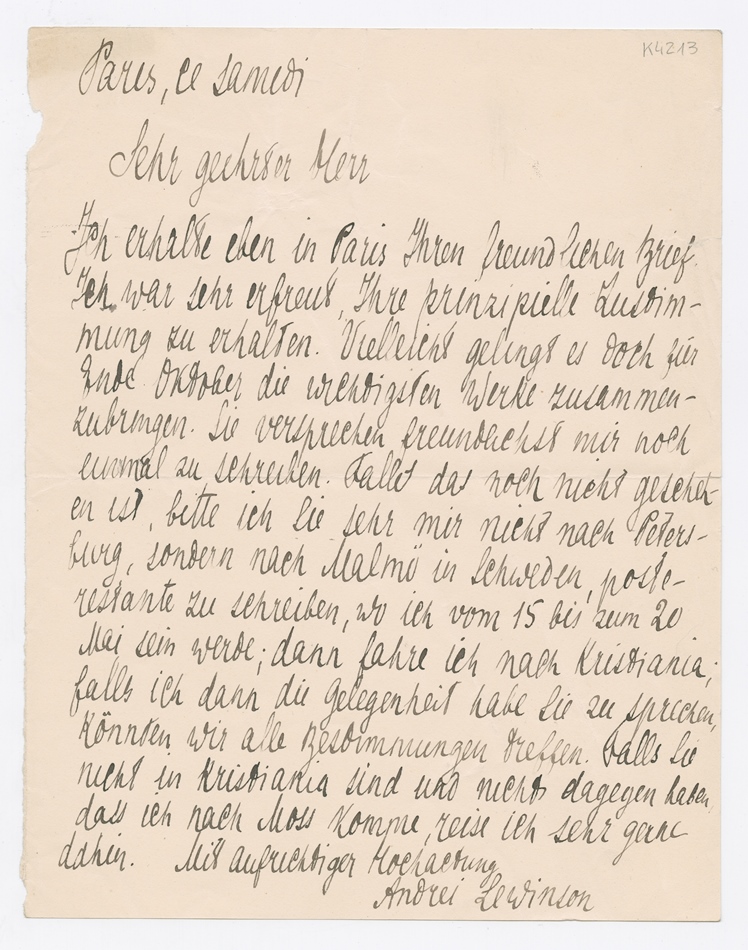 K4213
Paris, ce samedi
Sehr geehrter Herr
Ich erhalte eben in Paris Ihren freundlichen Brief.
Ich war sehr erfreut, Ihre prinzipielle Zustim-
mung zu erhalten. Vielleicht gelingt es doch für
Ende Oktober die wichtigsten Werke zusammen-
zubringen. Sie versprechen freundlichst mir noch
einmal zu schreiben. Falls das noch nicht gescheh-
en ist, bitte ich Sie sehr mir nicht nach Peters-
burg, sondern nach Malmö in Schweden, poste-
restante zu schreiben, wo ich vom 15 bis zum 20
Mai sein werde; dann fahre ich nach Kristiania;
falls ich dann die Gelegenheit habe Sie zu sprechen,
könnten wir alle Bestimmungen treffen. Falls Sie
nicht in Kristiania sind und nichts dagegen haben,
dass ich nach Moss komme, reise ich sehr gerne
dahin. Mit aufrichtiger Hochachtung
Andrei Lewinson